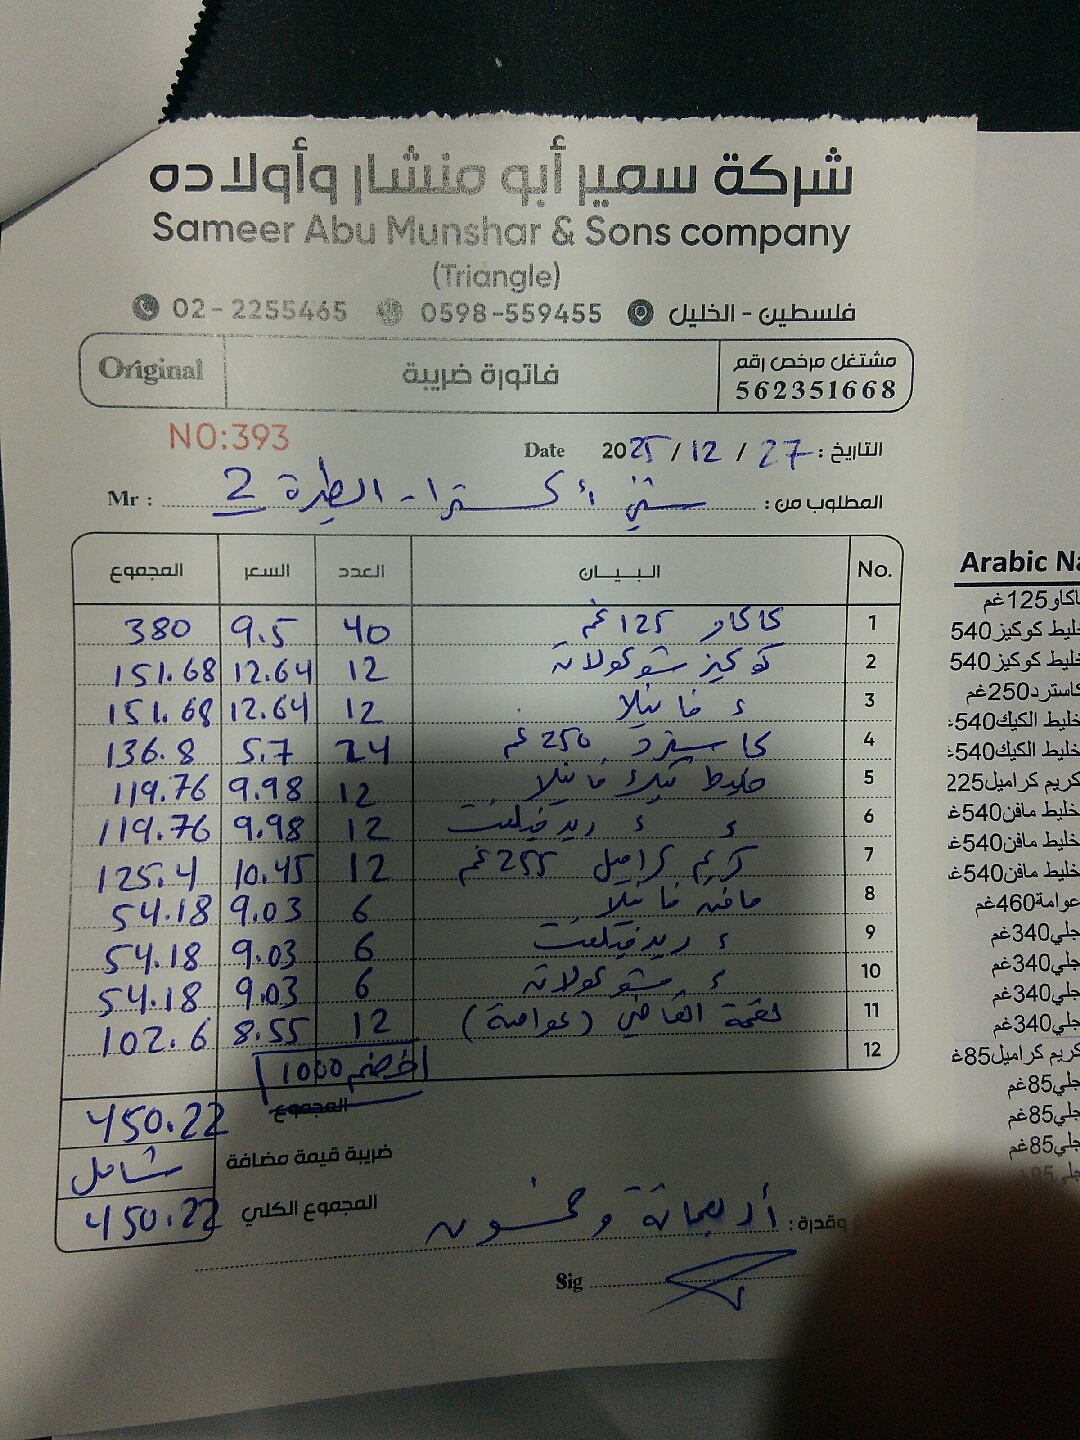 شركة سمير أبو منشار وأولاده
Sameer Abu Munshar & Sons company
(Triangle)
02-2255465 0598-559455 فلسطين - الخليل
Original فاتورة ضريبة مشتغل مرخص رقم
562351668
NO:393 Date 2025 / 12 / 27 التاريخ :
Mr : المطلوب من : ستي أكسترا - الطيرة 2
No. البيـــان العدد السعر المجموع
1 كاكاو 125 غم 40 9.5 380
2 كوكيز شوكولاتة 12 12.64 151.68
3 ء فانيلا 12 12.64 151.68
4 كاسترد 250 غم 24 5.7 136.8
5 خليط كيك فانيلا 12 9.98 119.76
6 ء ء ريد فيلفت 12 9.98 119.76
7 كريم كراميل 255 غم 12 10.45 125.4
8 مافن فانيلا 6 9.03 54.18
9 ء ريد فيلفت 6 9.03 54.18
10 ء شوكولاتة 6 9.03 54.18
11 لقمة القاضي (عوامة) 12 8.55 102.6
12 خصم 1000
المجموع 450.22
ضريبة قيمة مضافة شامل
المجموع الكلي 450.22
وقدرة : أربعمائة وخمسون
Sig
Arabic Na
كاو125غم
خليط كوكيز540
خليط كوكيز540
كاسترد250غم
خليط الكيك540
خليط الكيك540
كريم كراميل225
خليط مافن540غ
خليط مافن540غ
خليط مافن540غ
عوامة460غم
جلي340غم
جلي340غم
جلي340غم
جلي340غم
كريم كراميل85غ
جلي85غم
جلي85غم
جلي85غم